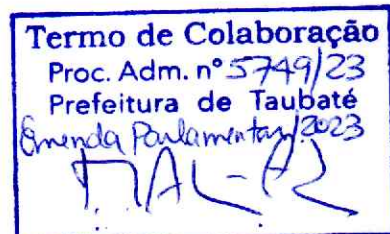 Termo de Colaboração
Proc. Adm. nº 5749/23
Prefeitura de Taubaté
Emenda Parlamentar/2023